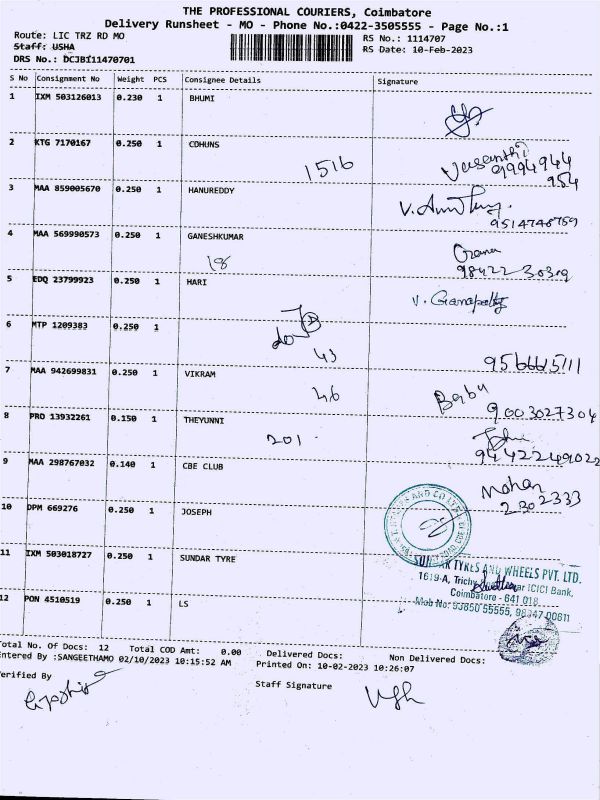 THE PROFESSIONAL COURIERS, Coimbatore
Delivery Runsheet - MO - Phone No.:0422-3505555 - Page No.:1
Route: LIC TRZ RD MO
RS No.: 1114707
Staff: USHA
RS Date: 10-Feb-2023
DRS No.: DCJB111470701
S No Consignment No Weight PCS Consignee Details Signature
1 IXM 503126013 0.230 1 BHUMI
2 KTG 7170167 0.250 1 COHUNS
1516 Vasanthi
9994944
954
3 MAA 859005670 0.250 1 HANUREDDY
9514748759
4 MAA 569990573 0.250 1 GANESHKUMAR
18
98422-30309
5 EDQ 23799923 0.250 1 HARI V. Ganapathy
6 MTP 1209383 0.250 1
43 9566615111
7 MAA 942699831 0.250 1 VIKRAM
46 Babu
9003027304
8 PRO 13932261 0.150 1 THEYUNNI
201.
9442249022
9 MAA 298767032 0.140 1 CBE CLUB
Mohan
2302333
10 DPM 669276 0.250 1 JOSEPH
11 IXM 503018727 0.250 1 SUNDAR TYRE
TYRES AND WHEELS PVT. LTD.
1619-A, Trichy ICICI Bank,
Coimbatore - 641 018
Mob No: 93850 55555, 98947 00611
12 PON 4510519 0.250 1 LS
Total No. Of Docs: 12 Total COD Amt: 0.00 Delivered Docs: Non Delivered Docs:
Entered By :SANGEETHAMO 02/10/2023 10:15:52 AM Printed On: 10-02-2023 10:26:07
Verified By Staff Signature